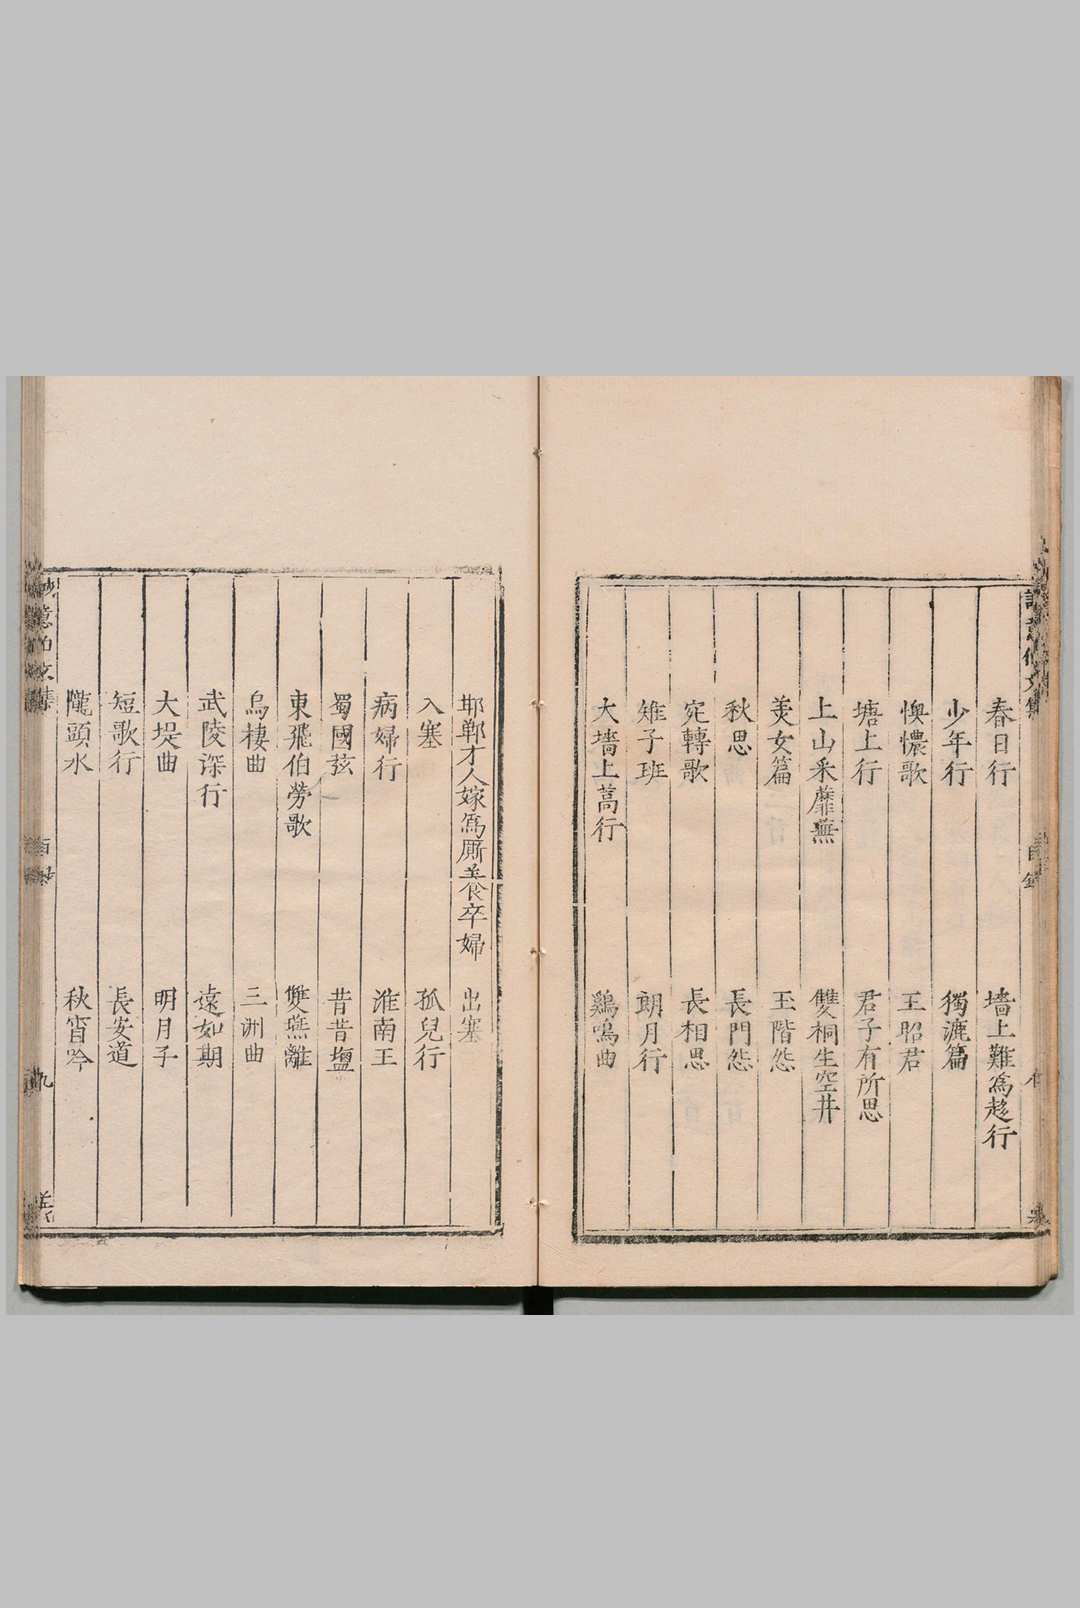 春日行 墻上難爲趍行
少年行 獨漉篇
懊憹歌 王昭君
塘上行 君子有所思
上山采蘼蕪 雙桐生空井
美女篇 玉階怨
秋思 長門怨
宛轉歌 長相思
雉子班 朗月行
大墻上蒿行 鷄鳴曲
邯鄲才人嫁爲厮養卒婦 出塞
入塞 孤兒行
病婦行 淮南王
蜀國弦 昔昔鹽
東飛伯勞歌 雙燕離
烏棲曲 三洲曲
武陵深行 遠如期
大堤曲 明月子
短歌行 長安道
隴頭水 秋宵吟
九